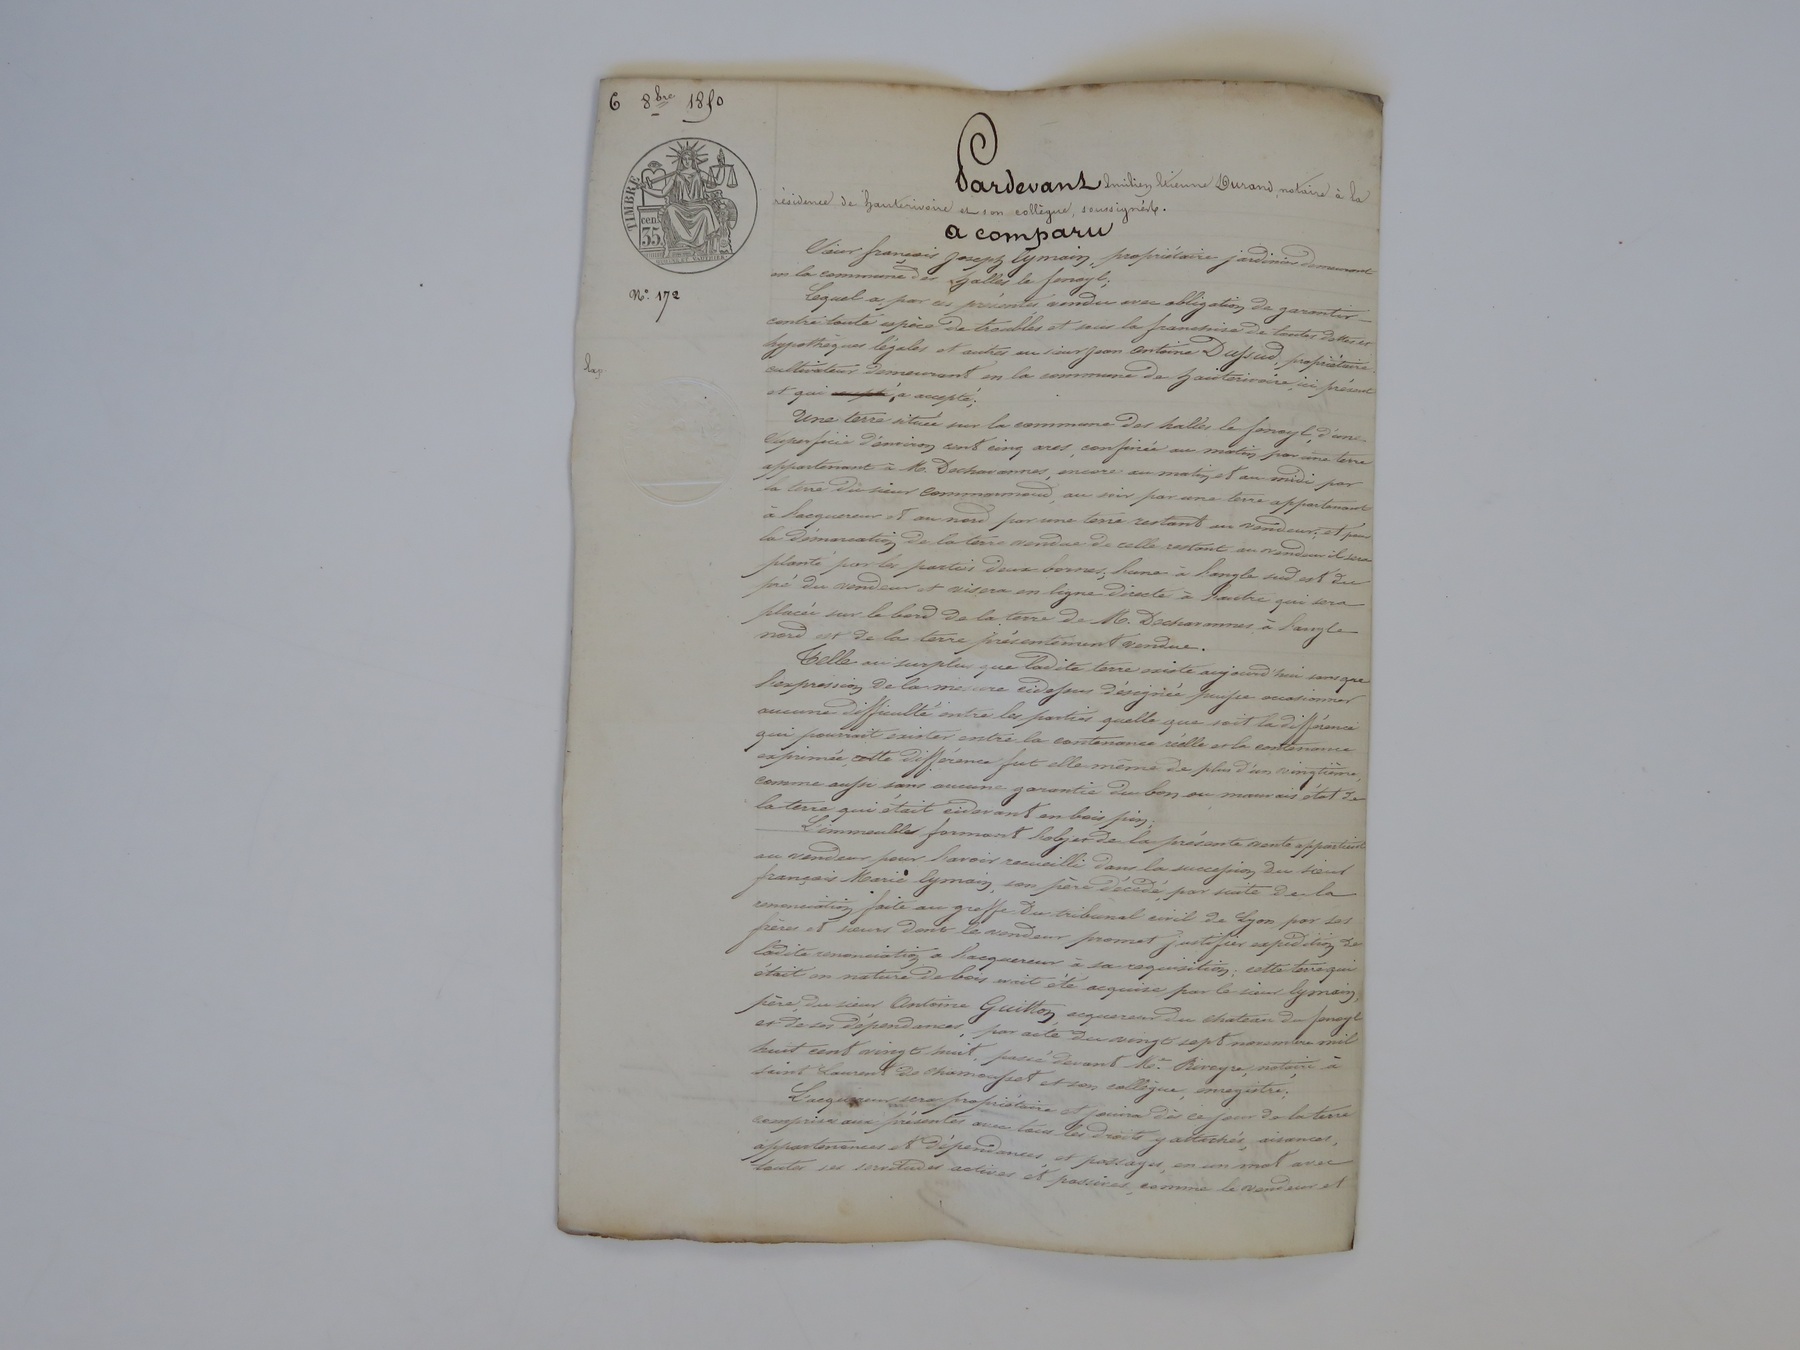 6 8bre 1850
TIMBRE
cent
35
N° 172
Pardevant Emilien Etienne Durand, notaire à la
résidence de hauterivoire et son collègue, soussignés.
a comparu
Sieur françois Joseph Eymain, propriétaire jardinier demeurant
en la commune des halles le fenoyl;
Lequel a, par ces présentes vendu avec obligation de garantir
contre toute espèce de troubles et sous la franchise de toutes dettes et
hypothèques légales et autres au sieur Jean Antoine Dussud, propriétaire
cultivateur demeurant en la commune de hauterivoire, ici présent
et qui a accepté;
Une terre située sur la commune des halles le fenoyl, d'une
superficie d'environ cent cinq ares, confinée au matin par une terre
appartenant à M. Decharannes, encore au matin et au midi par
la terre du sieur Commarmond, au soir par une terre appartenant
à l'acquereur et au nord par une terre restant au vendeur; et pour
la démarcation de la terre vendue de celle restant au vendeur il sera
planté par les parties deux bornes, l'une à l'angle sud est du
pré du vendeur et visera en ligne directe à l'autre qui sera
placée sur le bord de la terre de M. Decharannes à l'angle
nord est de la terre présentement vendue.
Telle au surplus que ladite terre existe aujourd'hui sans que
l'expression de la mesure cidessus désignée puisse occasionner
aucune difficulté entre les parties quelle que soit la différence
qui pourrait exister entre la contenance réelle et la contenance
exprimée, cette différence fut elle même de plus d'un vingtième,
comme aussi sans aucune garantie du bon ou mauvais état de
la terre qui était cidevant en bois pin;
L'immeubles formant l'objet de la présente vente appartient
au vendeur pour l'avoir recueilli dans la succession du sieur
françois Marie Eymain, son père décédé, par suite de la
renonciation faite au greffe du tribunal civil de Lyon par ses
frères et soeurs dont le vendeur promet justifier expédition de
ladite renonciation a l'acquereur à sa requisition; cette terre qui
était en nature de bois avait été acquise par le sieur Eymain,
père, du sieur Antoine Guitton acquereur du chateau du fenoyl
et de ses dépendances, par acte du vingt sept novembre mil
huit cent vingt huit, passé devant Me Riveyre, notaire à
saint Laurent de chamousset et son collègue, enregistré;
L'acquereur sera propriétaire et jouira dès ce jour de la terre
comprise aux présentes avec tous les droits y attachés, aisances,
appartenances et dépendances, et passages, en un mot avec
toutes ses servitudes actives et passives, comme le vendeur et